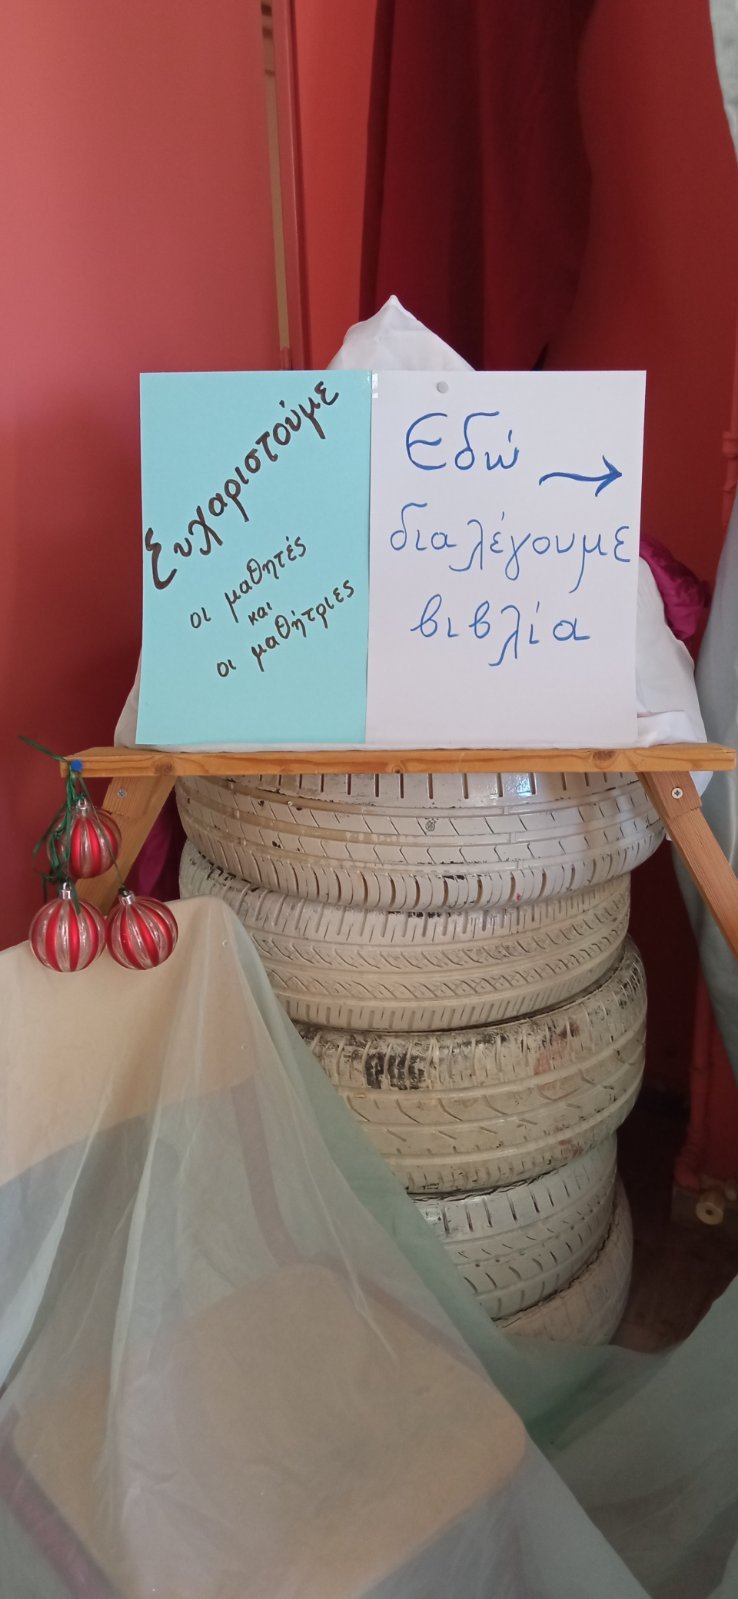 Ευχαριστούμε
οι μαθητές
και
οι μαθήτριες
Εδώ →
διαλέγουμε
βιβλία